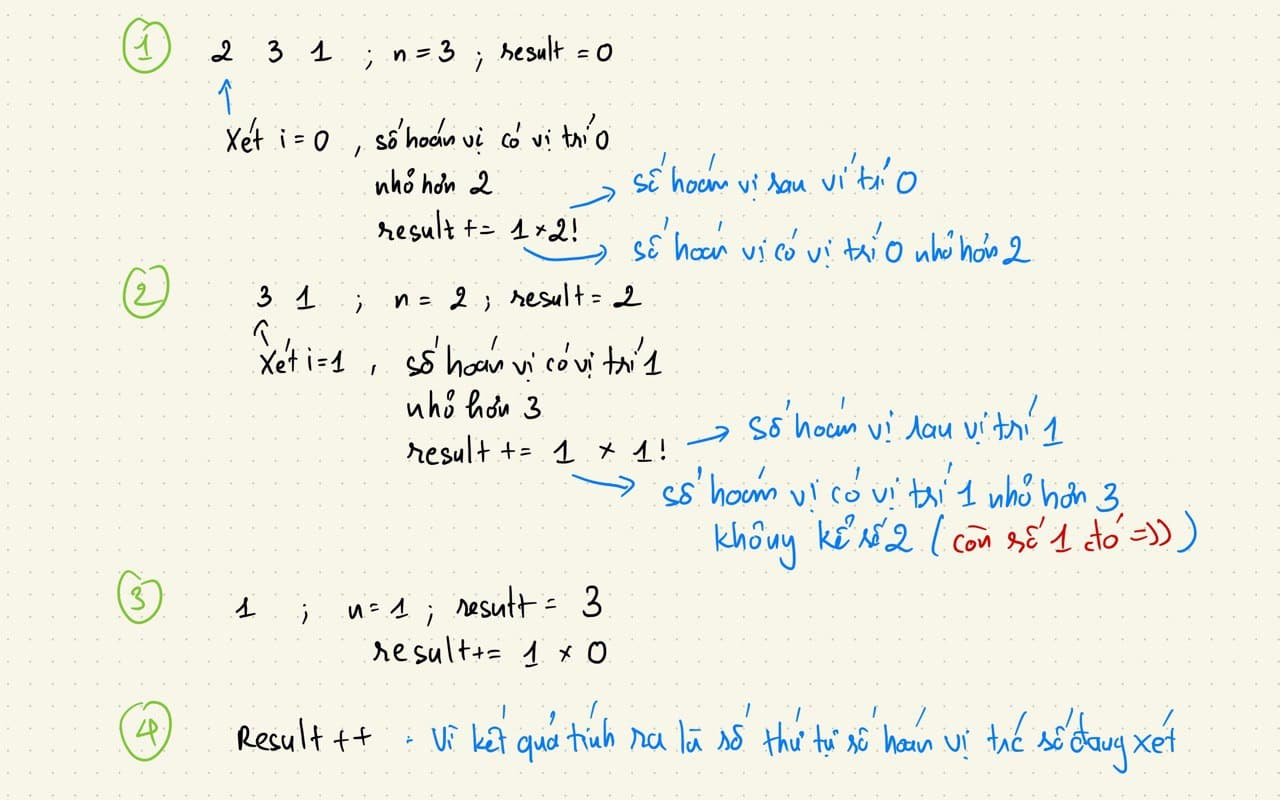 1 2 3 1 ; n = 3 ; result = 0
↑
Xét i = 0 , số hoán vị có vị trí 0
nhỏ hơn 2 → số hoán vị sau vị trí 0
result += 1 × 2! → số hoán vị có vị trí 0 nhỏ hơn 2
2 3 1 ; n = 2 ; result = 2
↑
Xét i = 1 , số hoán vị có vị trí 1
nhỏ hơn 3
result += 1 × 1! → số hoán vị sau vị trí 1
→ số hoán vị có vị trí 1 nhỏ hơn 3
không kể số 2 (còn số 1 đó =)))
3 1 ; n = 1 ; result = 3
result += 1 × 0
4 Result ++ : Vì kết quả tính ra là số thứ tự số hoán vị trc số đang xét